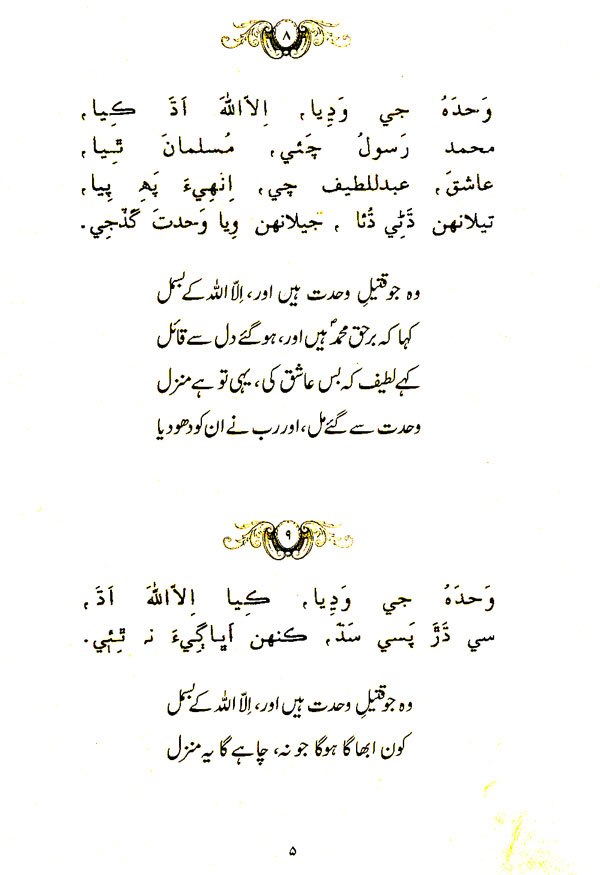 ۸
وَحدَہُ جي وَڍِيا، اِلاَّاللهَ اَڌَ ڪِيا،
محمد رَسولُ چَئي، مُسلمانَ ٿِيا،
عاشقَ، عبدللطيف چي، اِنهِيءَ پَھِ پِيا،
تيلانهن ڌَڻِي ڌُئا ، جيلانهن وِيا وَحدتَ گَڏجِي.
وہ جو قتیلِ وحدت ہیں اور، اِلاَّ اللہ کے بسمل
کہا کہ برحق محمدؐ ہیں اور، ہو گئے دل سے قائل
کہے لطیف کہ بس عاشق کی، یہی تو ہے منزل
وحدت سے گئے مل، اور رب نے ان کو دھو دیا
۹
وَحدَہُ جي وَڍِيا، ڪِيا اِلاَّاللهَ اَڌَ،
سي ڌَڙَ پَسي سَڌَ، ڪنهن اَڀاڳِيءَ نہ ٿِئِي.
وہ جو قتیلِ وحدت ہیں اور، اِلاَّ اللہ کے بسمل
کون ابھاگا ہوگا جو نہ، چاہے گا یہ منزل
۵